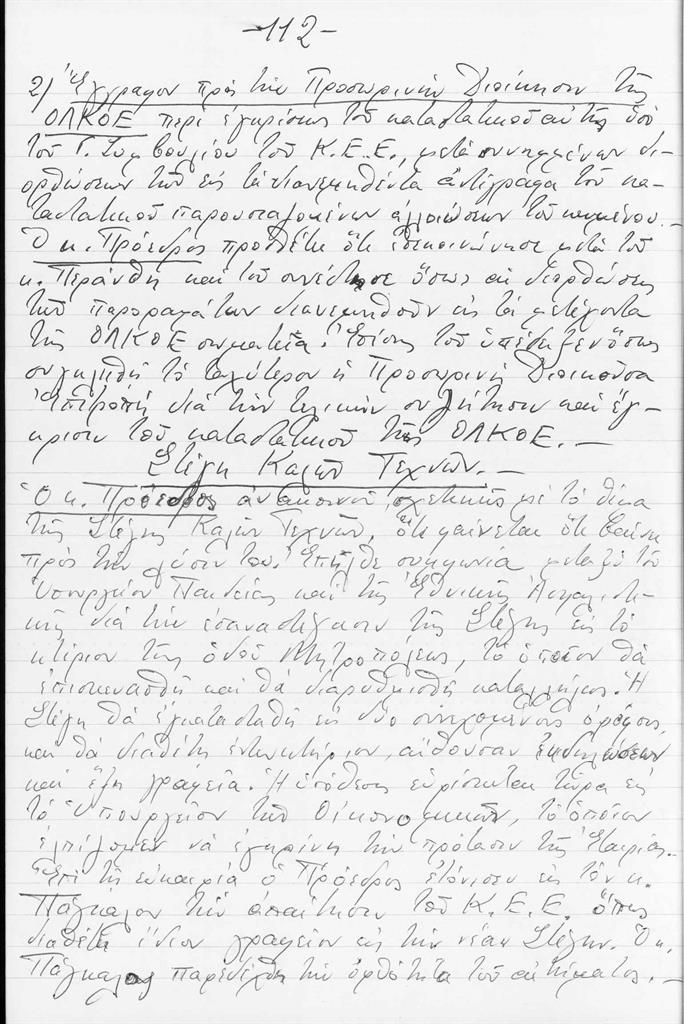 -112-
2) Ἔγγραφον πρὸς τὴν Προσωρινὴν Διοίκησιν τῆς
ΟΛΚΟΕ περὶ ἐγκρίσεως τοῦ καταστατικοῦ αὐτῆς ὑπὸ
τοῦ Γ. Συμβουλίου τοῦ Κ.Ε.Ε., μετὰ συνημμένων δι-
ορθώσεων τῶν εἰς τὰ διανεμηθέντα ἀντίγραφα τοῦ κα-
ταστατικοῦ παρουσιαζομένων ἀλλοιώσεων τοῦ κειμένου.
Ὁ κ. Πρόεδρος προσθέτει ὅτι ἐπεκοινώνησε μετὰ τοῦ
κ. Περάνθη καὶ τοῦ συνέστησε ὅπως αἱ διορθώσεις
τῶν παροραμάτων διανεμηθοῦν εἰς τὰ μετέχοντα
τῆς ΟΛΚΟΕ σωματεῖα. Ἐπίσης τοῦ ὑπέδειξεν ὅπως
συγκληθῇ τὸ ταχύτερον ἡ Προσωρινὴ Διοικοῦσα
Ἐπιτροπὴ διὰ τὴν τελικὴν συζήτησιν καὶ ἔγ-
κρισιν τοῦ καταστατικοῦ τῆς ΟΛΚΟΕ.-
Στέγη Καλῶν Τεχνῶν.-
Ὁ κ. Πρόεδρος ἀνακοινοῖ, σχετικῶς μὲ τὸ θέμα
τῆς Στέγης Καλῶν Τεχνῶν, ὅτι φαίνεται ὅτι βαίνει
πρὸς τὴν λύσιν του. Ἐπῆλθε συμφωνία μεταξὺ τοῦ
Ὑπουργείου Παιδείας καὶ τῆς Ἐθνικῆς Ἀσφαλιστι-
κῆς διὰ τὴν ἐπαναστέγασιν τῆς Στέγης εἰς τὸ
κτίριον τῆς ὁδοῦ Μητροπόλεως, τὸ ὁποῖον θὰ
ἐπισκευασθῇ καὶ θὰ διαρυθμισθῇ καταλλήλως. Ἡ
Στέγη θὰ ἐγκατασταθῇ εἰς δύο συνεχομένους ὀρόφους
καὶ θὰ διαθέτῃ ἐντευκτήριον, αἴθουσαν ἐκδηλώσεων
καὶ ἕξη γραφεῖα. Ἡ ὑπόθεσις εὑρίσκεται τώρα εἰς
τὸ Ὑπουργεῖον τῶν Οἰκονομικῶν, τὸ ὁποῖον
ἐλπίζομεν νὰ ἐγκρίνῃ τὴν πρότασιν τῆς Ἑταιρίας.-
Ἐπὶ τῇ εὐκαιρίᾳ ὁ Πρόεδρος ἐτόνισεν εἰς τὸν κ.
Πάγκαλον τὴν ἀπαίτησιν τοῦ Κ.Ε.Ε. ὅπως
διαθέτῃ ἴδιον γραφεῖον εἰς τὴν νέαν Στέγην. Ὁ κ.
Πάγκαλος παρεδέχθη τὴν ὀρθότητα τοῦ αἰτήματος.-